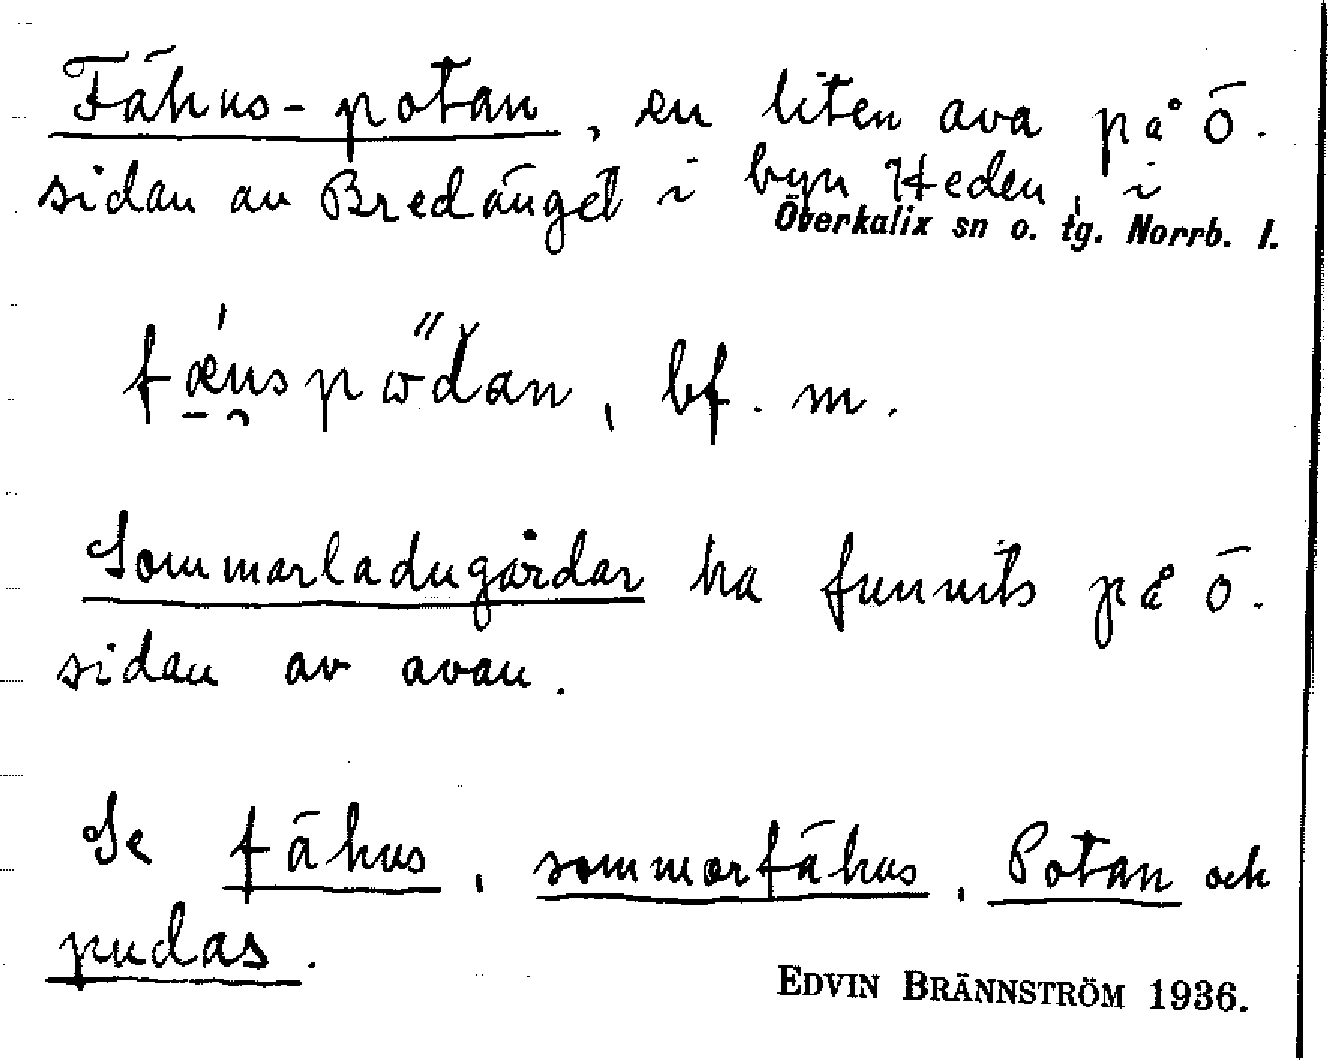 Fähus-potan, en liten ava på ö.
sidan av Bredänget i byn Heden, i
Överkalix sn o. tg. Norrb. l.
fǽ̱n̯spω̋dan, bf. m.
Sommarladugårdar ha funnits på ö.
sidan av avan.
Se fähus, sommarfähus, Potan och
pudas.
EDVIN BRÄNNSTRÖM 1936.